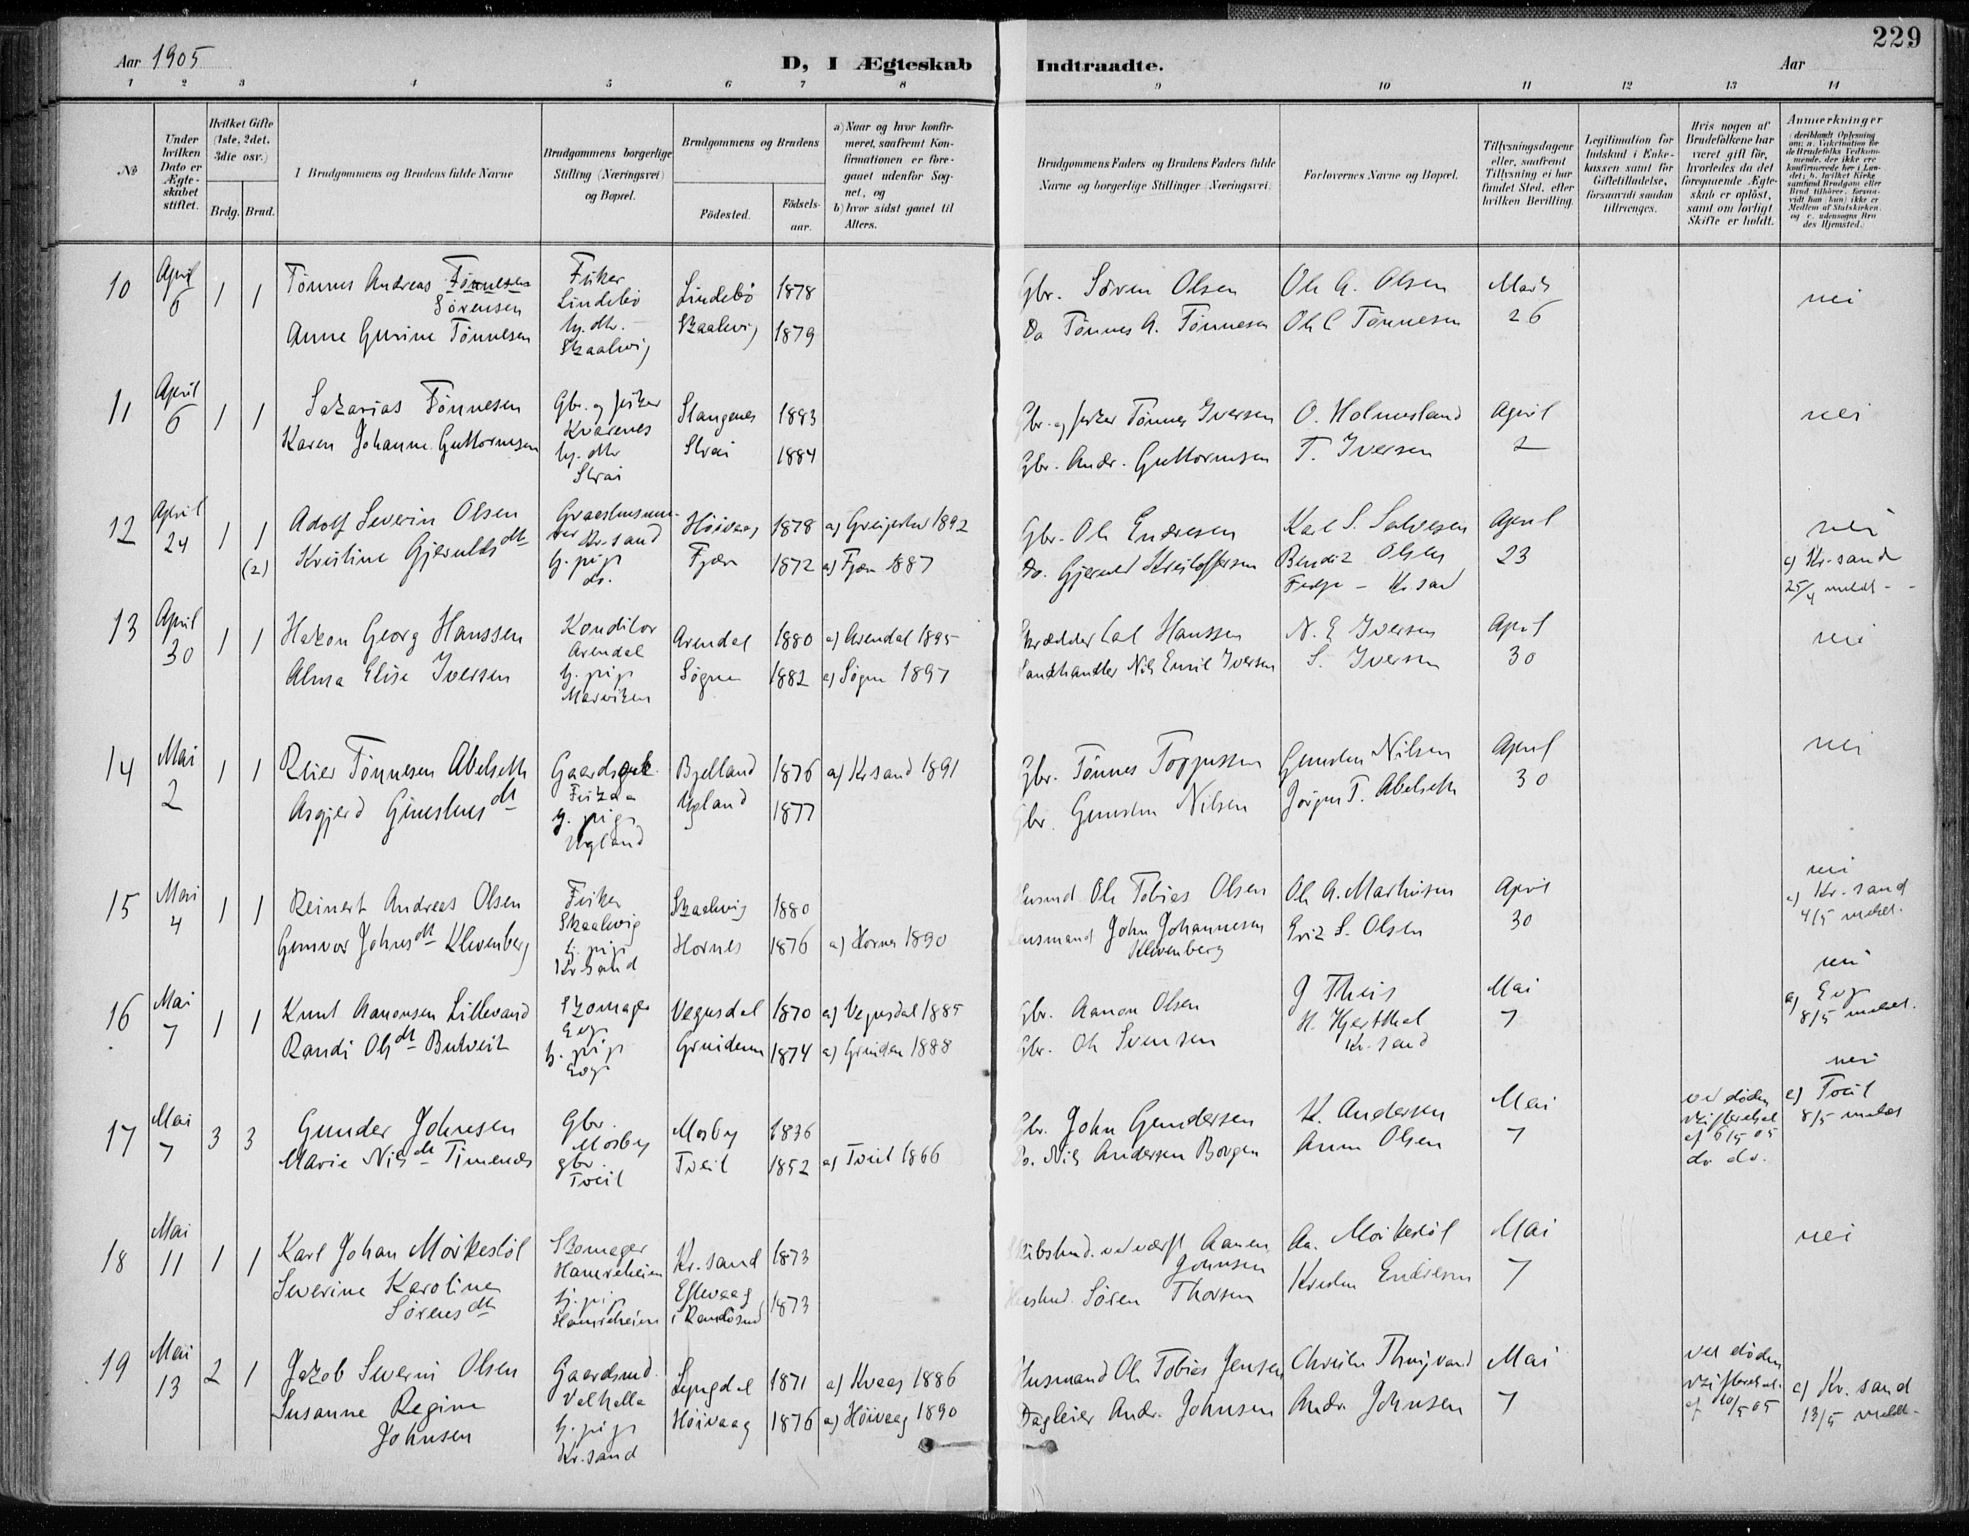 229
Aar 1905
D, I Ægteskab Indtraadte.
Aar
1 2 3 4 5 6 7 8 9 10 11 12 13 14
No
Under hvilken Dato er Ægteskabet stiftet.
Hvilket Gifte (1ste, 2det, 3die osv.)
Brdg. Brud.
1 Brudgommens og Brudens fulde Navne
Brudgommens borgerlige Stilling (Næringsvei) og Bopæl.
Brudgommens og Brudens
Fødested. Fødselsaar.
a) Naar og hvor konfirmeret, saafremt Konfirmationen er foregaaet udenfor Sognet, og
b) hvor sidst gaaet til Alters.
Brudgommens Faders og Brudens Faders fulde Navne og borgerlige Stillinger (Næringsvei)
Forlovernes Navne og Bopæl.
Tillysningsdagene eller, saafremt Tillysning ei har fundet Sted, efter hvilken Bevilling.
Legitimation for Indskud i Enkekassen samt for Giftetilladelse, forsaavidt saadan tiltrænges.
Hvis nogen af Brudefolkene har været gift før, hvorledes da det foregaaende Ægteskab er opløst, samt om lovligt Skifte er holdt.
Anmerkninger
10 April 6 1 1
Tönnes Andreas Tönnesen Sörensen
Fisker Lindebö Lindebö 1878
Gbr. Sören Olsen Ole A. Olsen Marts 26 nei
Anne Gurine Tönnesen
Skaalevig Skaalevig 1879
Do Tönnes A. Tönnesen Ole C Tönnesen
11 April 6 1 1
Sakarias Tönnesen
Gbr. og fisker Kvarenes Stangenes 1883
Gbr. og fisker Tönnes Iversen O. Holmesland April 2 nei
Karen Johanne Guttormsen
Strai Strai 1884
Gbr. Andr. Guttormsen T. Iversen
12 April 24 1 1 (2)
Adolf Severin Olsen
Kr.sand Höivaag 1878 a) 1892
Gbr. Ole Endresen Karl S. Salvesen April 23 nei
Kristine Gjerulds dtr
h. pige do. Fjære 1872 a) Fjære 1887
Do. Gjeruld Kristoffersen Bendix Olsen
Kr.sand
c) Kr.sand 25/4 meldt
13 April 30 1 1
Hakon Georg Hanssen
Konditor Arendal Arendal 1880 a) Arendal 1895
Skrædder Carl Hanssen N. E Iversen April 30 nei
Alma Elise Iversen
h. pige Marviken Søgne 1882 a) Søgne 1897
Landhandler Nils Emil Iversen S. Iversen
14 Mai 2 1 1
Reier Tönnesen Abelseth
Gaardsgut Bjelland 1876 a) Kr.sand 1891
Gbr. Tönnes Toppussen Gunsten Nilsen April 30 nei
Asgjerd Gunstens dtr
h. pige Ugland Ugland 1877
Gbr. Gunsten Nilsen Jörgen T. Abelseth
15 Mai 4 1 1
Reinert Andreas Olsen
Fisker Skaalevig Skaalevig 1880
Husmd Ole Tobias Olsen Ole A. Mathisen April 30 nei
Gunvor Johns dtr Klevenberg
h. pige Kr.sand Hornes 1876 a) Hornes 1890
Lensmand John Johannesen Klevenberg S. Olsen
c) Kr.sand 4/5 meldt.
16 Mai 7 1 1
Knut Aanonsen Lillevand
Skomager Evje Vegusdal 1870 a) Vegusdal 1885
Gbr. Aanon Olsen J Theis Mai 7 nei
Randi Ols dtr Butveit
h. pige Evje 1874 a) 1888
Gbr. Ole Svensen H. Hjertthal Kr.sand
c) Evje 8/5 meldt.
17 Mai 7 3 3
Gunder Johnsen
Gbr. Mosby Mosby 1836
Gbr. John Gundersen K. Andersen Mai 7
Marie Nils dtr Timenes
gbr. Tveit Tveit 1852 a) Tveit 1866
Do. Nils Andersen Borgen Anen Olsen
ved döden skifteattest af 6/5 05 do do.
nei c) Tveit 8/5 meldt
18 Mai 11 1 1
Karl Johan Mörkestöl
Skomager Hamreheien Kr.sand 1873
ved værft Aanen Johnsen Aa. Mörkestöl Mai 7 nei
Severine Karoline Sörens dtr
h. pige Hamreheien Eftevaag i Randösund 1873
Husmd. Sören Thorsen Kristen Endresen
19 Mai 13 2 1
Jakob Severin Olsen
Gaardsmd. Valhalla Lyngdal 1871 a) Kvaas 1886
Husmand Ole Tobias Jensen Mai 7
Susanne Regine Johnsen
h. pige Kr.sand Höivaag 1876 a) Höivaag 1890
Dagleier Andr. Johnsen Andr. Johnsen
ved döden skifteattest af 10/5 05
c) Kr.sand 13/5 meldt